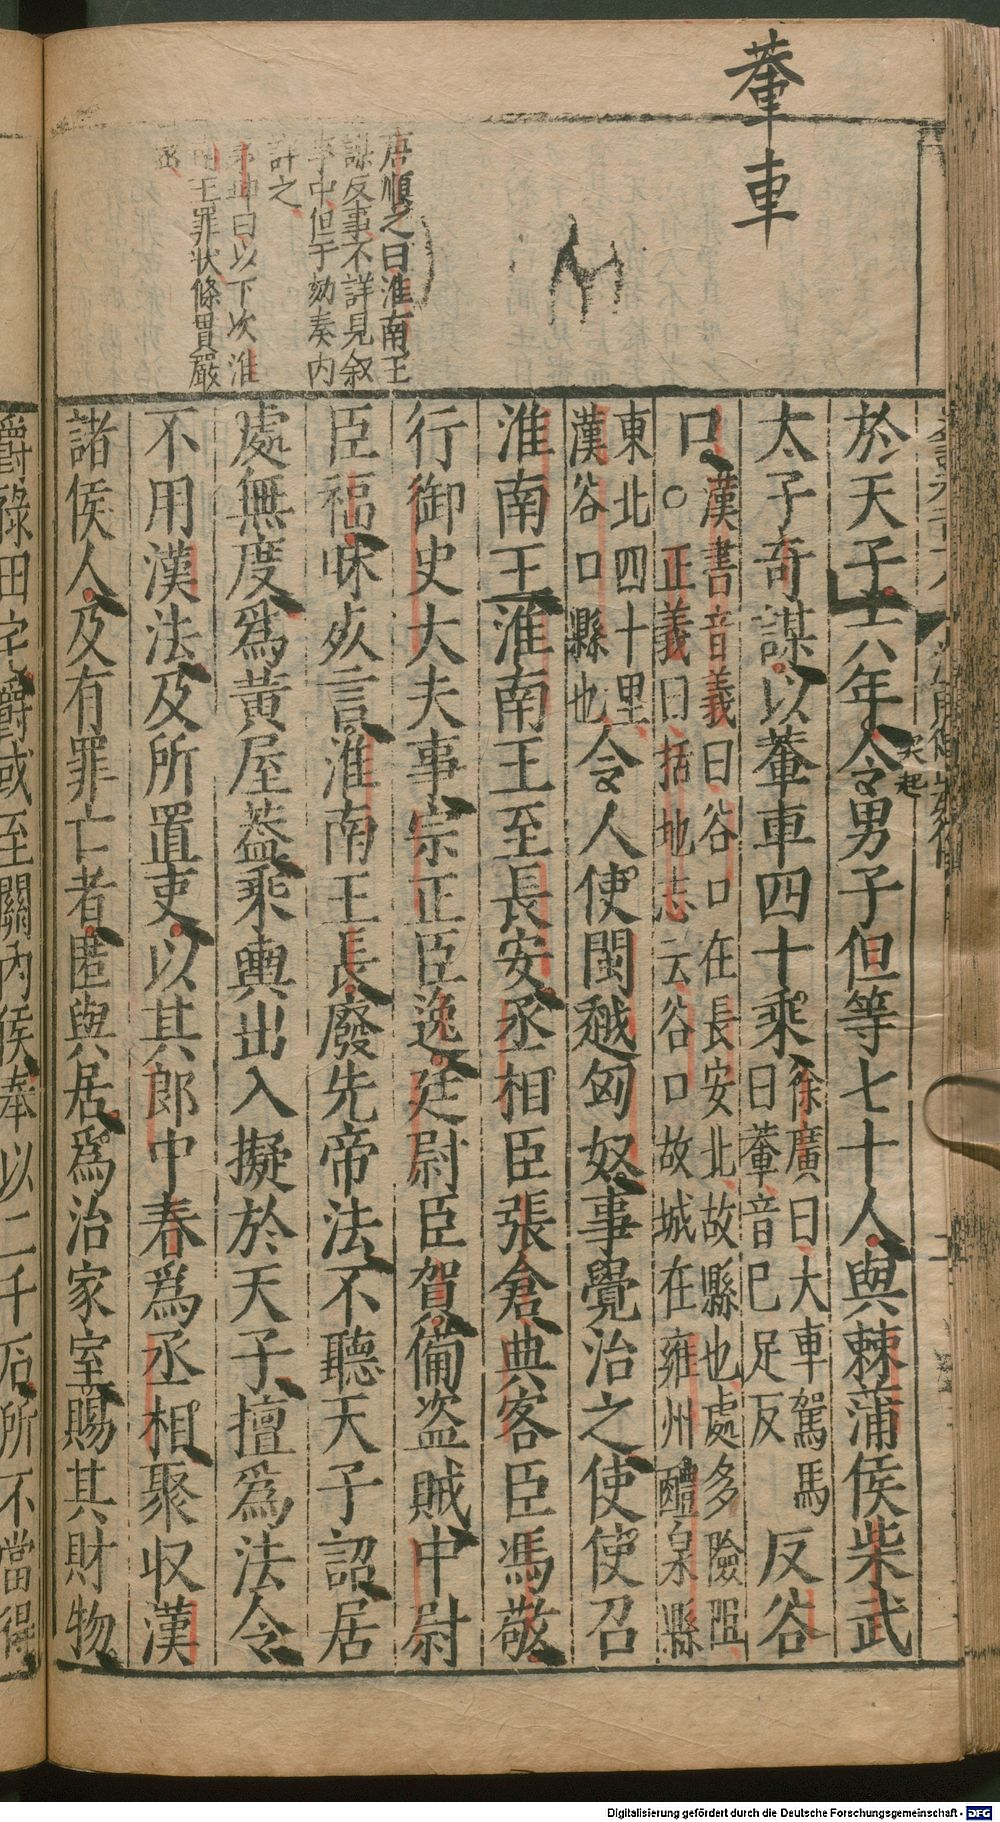 輂車
唐順之曰淮南王
謀反事不詳見叙
事中但于劾奏内
詳之
茅坤曰以下次淮
南王罪狀條貫嚴
突起
於天子六年令男子但等七十人與棘蒲侯柴武
太子奇謀以輂車四十乘徐廣曰大車駕馬
曰輂音已足反反谷
口漢書音義曰谷口在長安北故縣也處多險阻
○正義曰括地志云谷口故城在雍州醴泉縣
東北四十里
漢谷口縣也令人使閩越匈奴事覺治之使使召
淮南王淮南王至長安丞相臣張倉典客臣馮敬
行御史大夫事宗正臣逸廷尉臣賀備盗賊中尉
臣福昧死言淮南王長廢先帝法不聽天子詔居
處無度爲黃屋蓋乘輿出入擬於天子擅爲法令
不用漢法及所置吏以其郎中春爲丞相聚収漢
諸侯人及有罪亡者匿與居爲治家室賜其財物
爵祿田宅爵或至關內侯奉以二千石所不當得
Digitalisierung gefördert durch die Deutsche Forschungsgemeinschaft - DFG